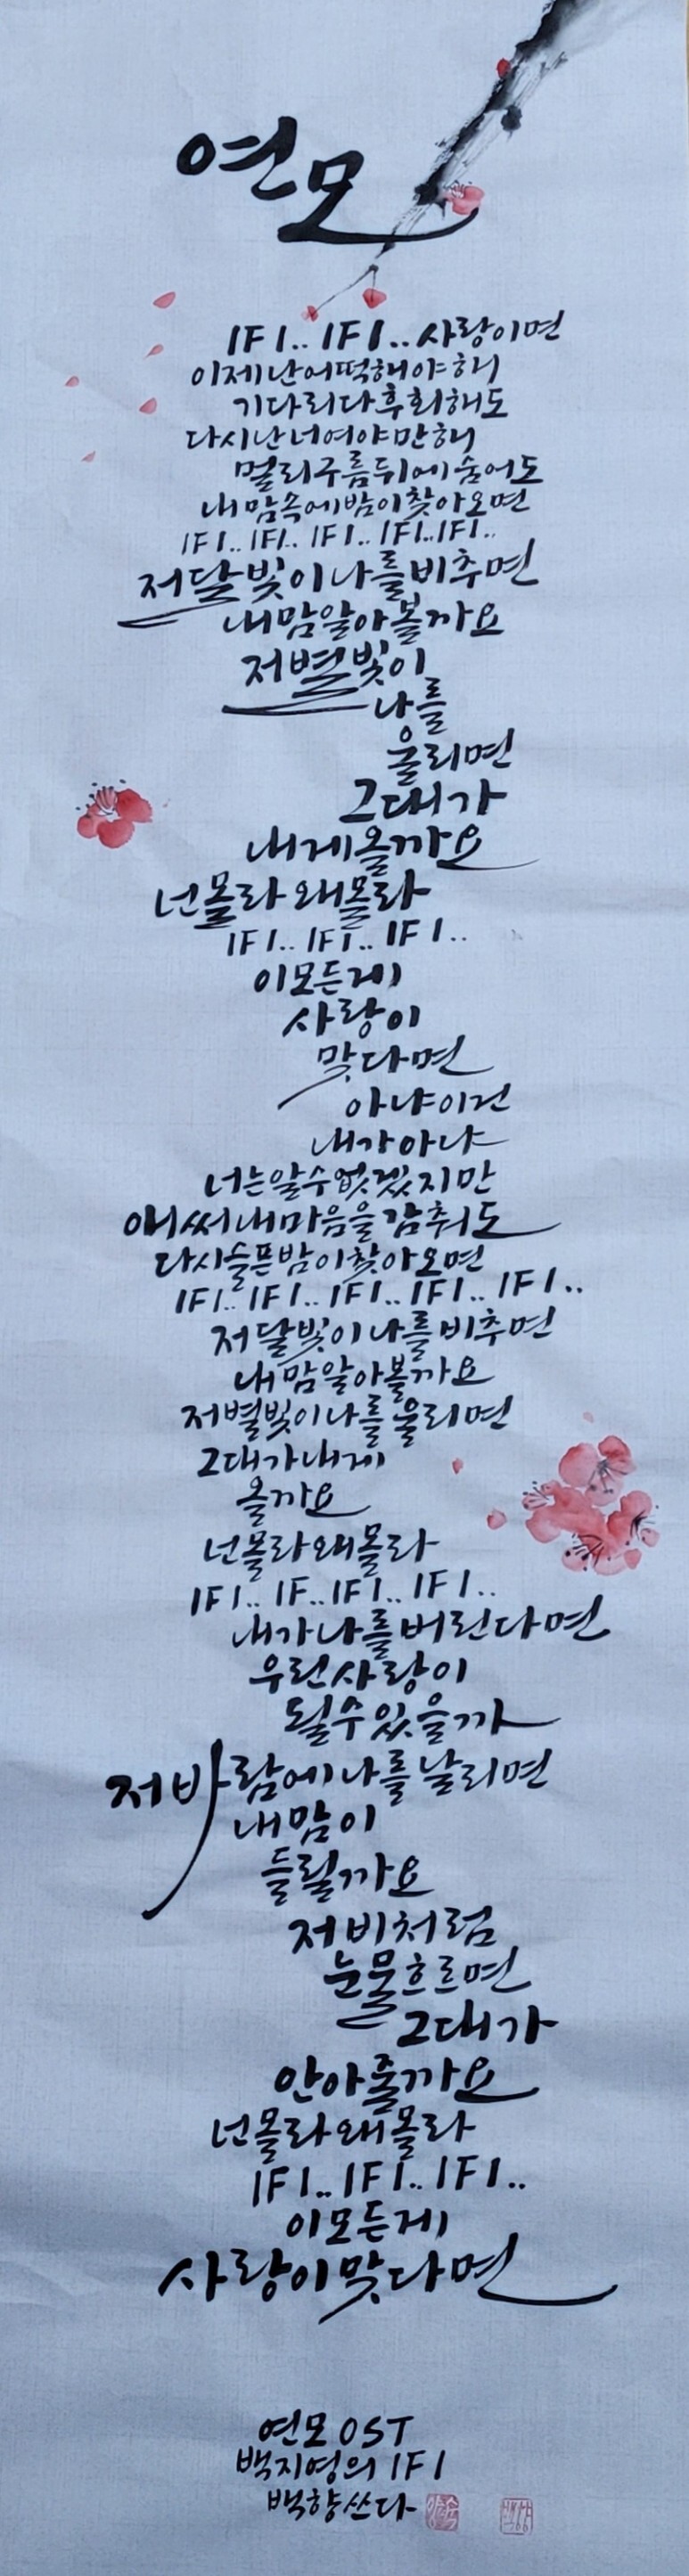 연모
IF I.. IF I.. 사랑이면
이제 난 어떡해야 해
기다리다 후회해도
다시 난 너여야만 해
멀리 구름 뒤에 숨어도
내 맘속에 밤이 찾아오면
IF I.. IF I.. IF I.. IF I.. IF I..
저 달빛이 나를 비추면
내 맘 알아볼까요
저 별빛이
나를
울리면
그대가
내게 올까요
넌 몰라 왜 몰라
IF I.. IF I.. IF I..
이 모든 게
사랑이
맞다면
아냐 이건
내가 아냐
너는 알 수 없겠지만
애써 내 마음을 감춰도
다시 슬픈 밤이 찾아오면
IF I.. IF I.. IF I.. IF I.. IF I..
저 달빛이 나를 비추면
내 맘 알아볼까요
저 별빛이 나를 울리면
그대가 내게
올까요
넌 몰라 왜 몰라
IF I.. IF.. IF I.. IF I..
내가 나를 버린다면
우린 사랑이
될 수 있을까
저 바람에 나를 날리면
내 맘이
들릴까요
저 비처럼
눈물 흐르면
그대가
안아줄까요
넌 몰라 왜 몰라
IF I.. IF I.. IF I..
이 모든 게
사랑이 맞다면
연모 OST
백지영의 IF I
백향 쓰다